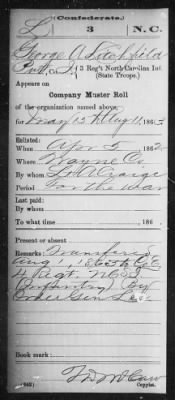 (Confederate.)
L 3 N.C.
George A Litchfield
Pvt, Co. , 3 Reg't North Carolina Inf.
(State Troops.)
Appears on
Company Muster Roll
of the organization named above,
for May 12 to Aug 11, 1863
Enlisted:
When Apr 5, 1862
Where Wayne Co
By whom Lt Craige
Period For the War
Last paid:
By whom
To what time , 186 .
Present or absent:
Remarks: Transfered
Aug 1, 1863 to Co E,
4 Regt. N.C.S.T.
(Infantry) By
order Gen Lee
Book mark:
(642)
Copyist.